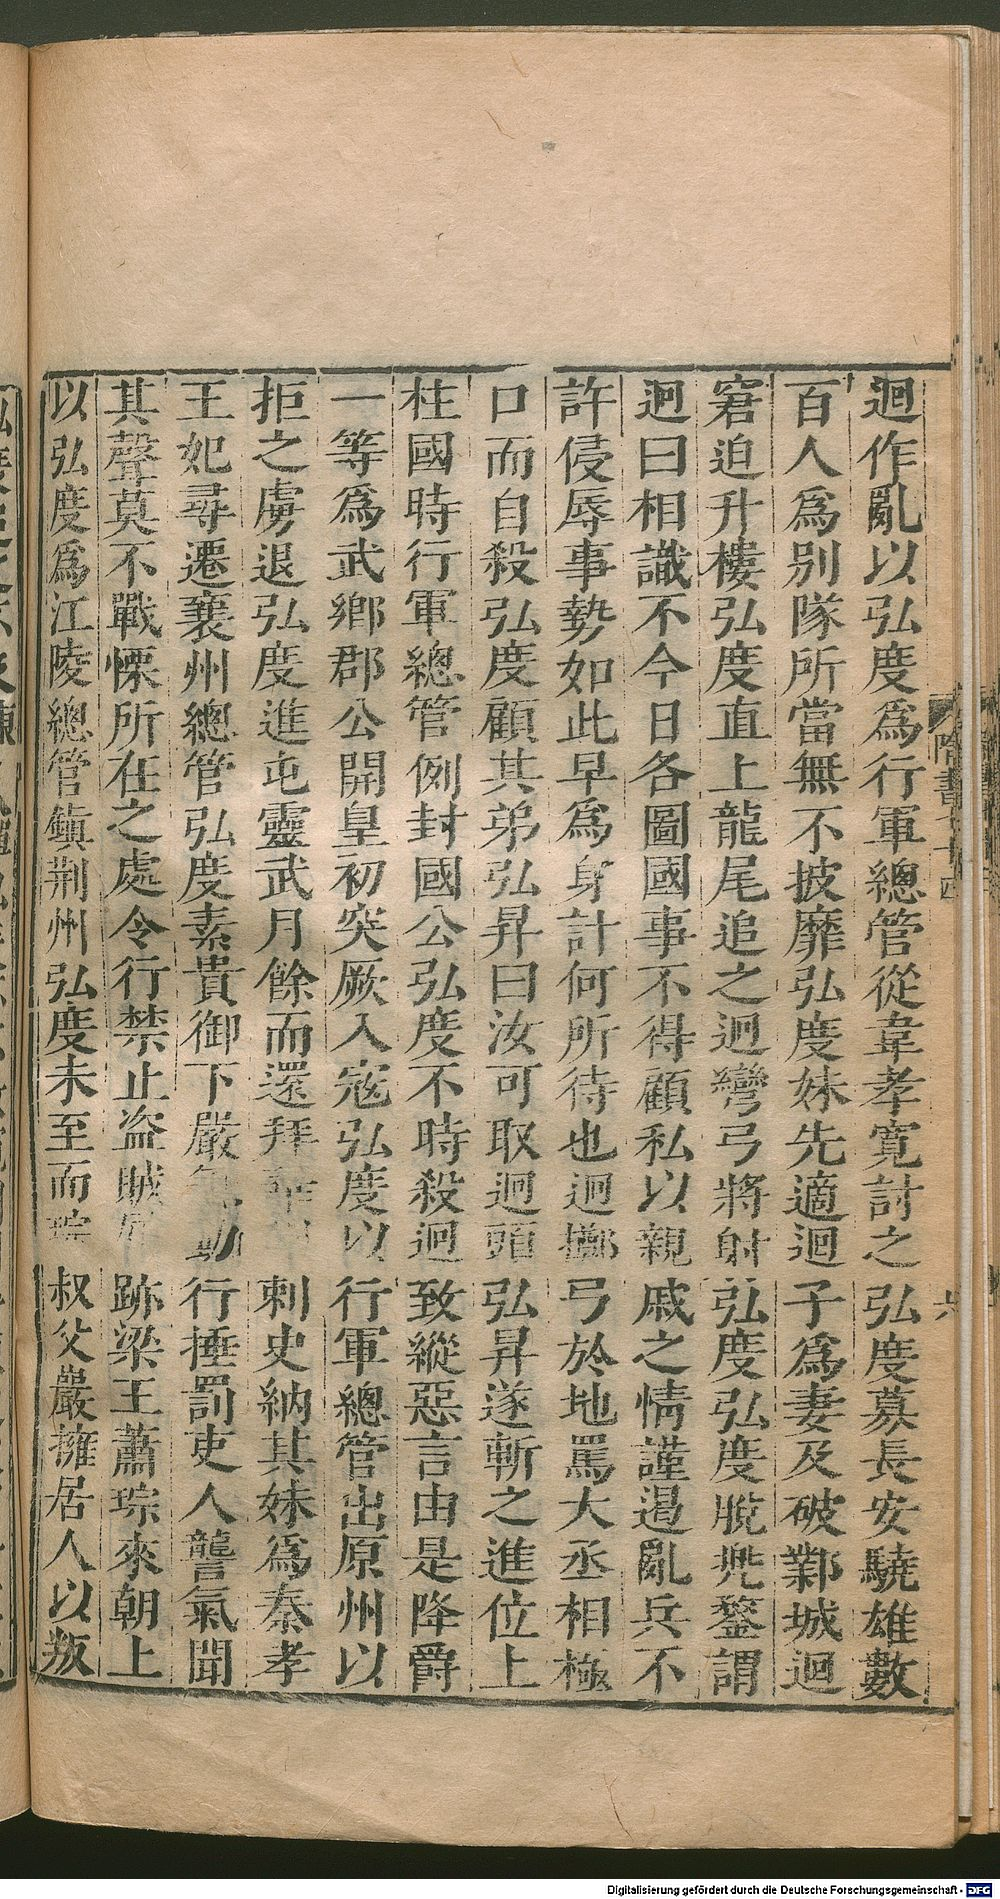 迥作亂以弘度爲行軍總管從韋孝寬討之弘度募長安驍雄數
百人爲別隊所當無不披靡弘度妹先適迥子爲妻及破鄴城迥
窘迫升樓弘度直上龍尾追之迥彎弓將射弘度弘度脫兠鍪謂
迥曰相識不今日各圖國事不得顧私以親戚之情謹遏亂兵不
許侵辱事勢如此早爲身計何所待也迥擲弓於地罵大丞相極
口而自殺弘度顧其弟弘昇曰汝可取迥頭弘昇遂斬之進位上
柱國時行軍總管例封國公弘度不時殺迥致縱惡言由是降爵
一等爲武鄉郡公開皇初突厥入寇弘度以行軍總管出原州以
拒之虜退弘度進屯靈武月餘而還拜華州刺史納其妹爲秦孝
王妃尋遷襄州總管弘度素貴御下嚴急動行捶罰吏人讋氣聞
其聲莫不戰慄所在之處令行禁止盜賊屏跡梁王蕭琮來朝上
以弘度爲江陵總管鎮荆州弘度未至而琮叔父巖擁居人以叛
隋書七十四
六
Digitalisierung gefördert durch die Deutsche Forschungsgemeinschaft - DFG